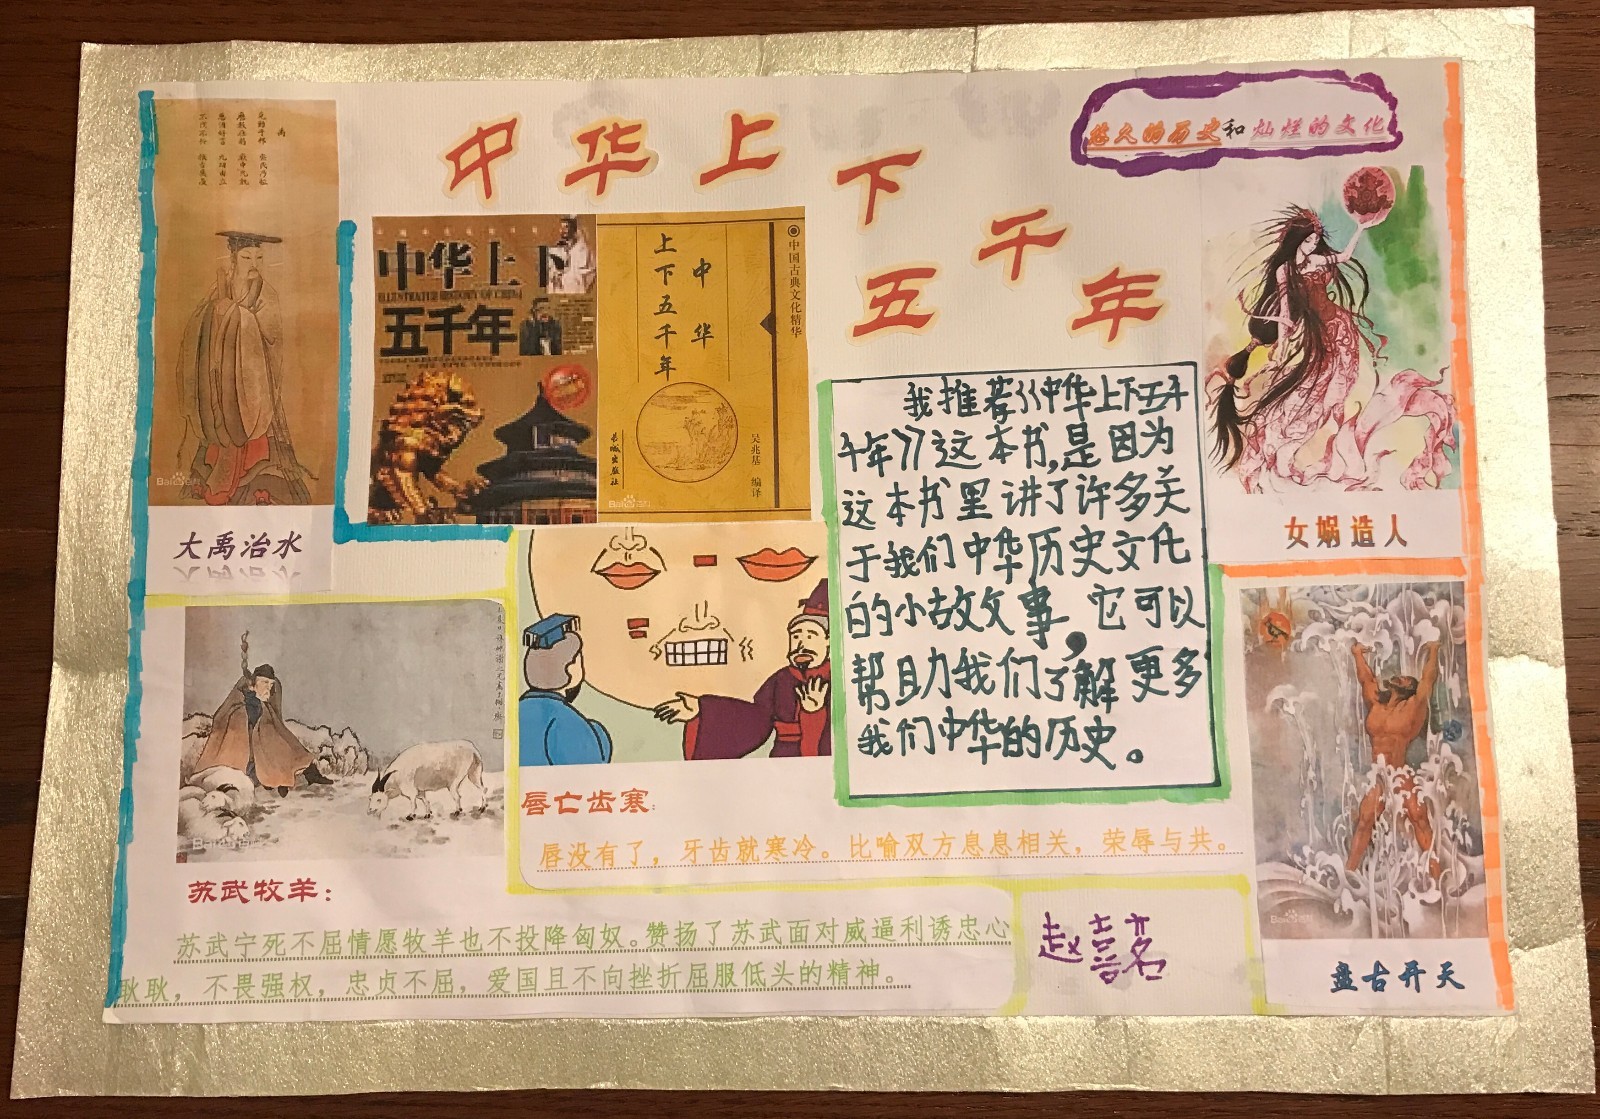 中华上下五千年
悠久的历史和灿烂的文化
禹
中华上下
ILLUSTRATED HISTORY OF CHINA
五千年
中华
上下五千年
中国古典文化精华
吴兆基 编译
长城出版社
Bai
大禹治水
女娲造人
我推荐《中华上下五千
千年》这本书,是因为
这本书里讲了许多关
于我们中华历史文化
的小故事，它可以
帮助我们了解更多
我们中华的历史。
唇亡齿寒：
唇没有了，牙齿就寒冷。比喻双方息息相关，荣辱与共。
苏武牧羊：
苏武宁死不屈情愿牧羊也不投降匈奴。赞扬了苏武面对威逼利诱忠心
耿耿，不畏强权，忠贞不屈，爱国且不向挫折屈服低头的精神。
盘古开天